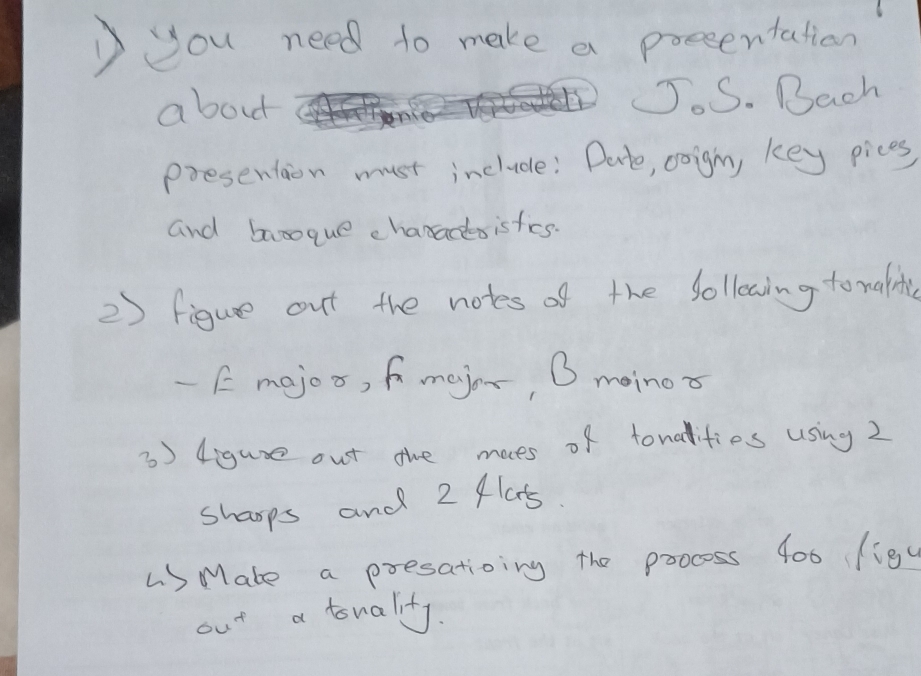 1) You need to make a preeentation
about J.S. Bach
presention must include: Date, origin, key pices,
and baroque characteristics.
2) figure out the notes of the following tonalitie
- E major, major, B moinor
3) figure out the of tonalities using 2
sharps and 2 flats.
4) Make a the process for figu
out a tonality.